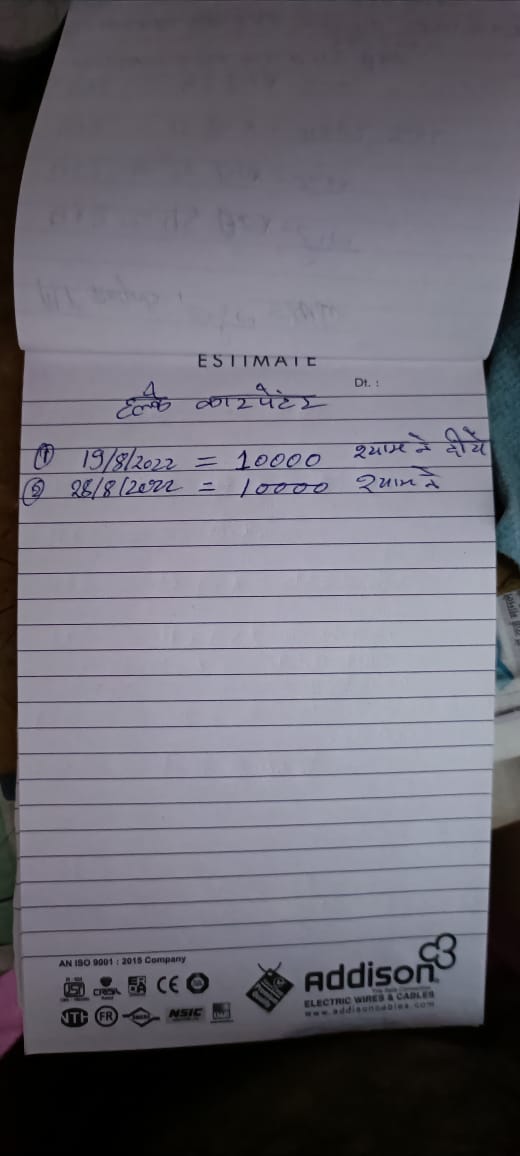 ESTIMATE
Dt. :
कारपेंटर
① 19/8/2022 = 10000 श्याम ने दीये
② 28/8/2022 = 10000 श्याम ने
AN ISO 9001 : 2015 Company
ISI CRISIL CE
FR NSIC
Addison
ELECTRIC WIRES & CABLES
www.addisoncables.com